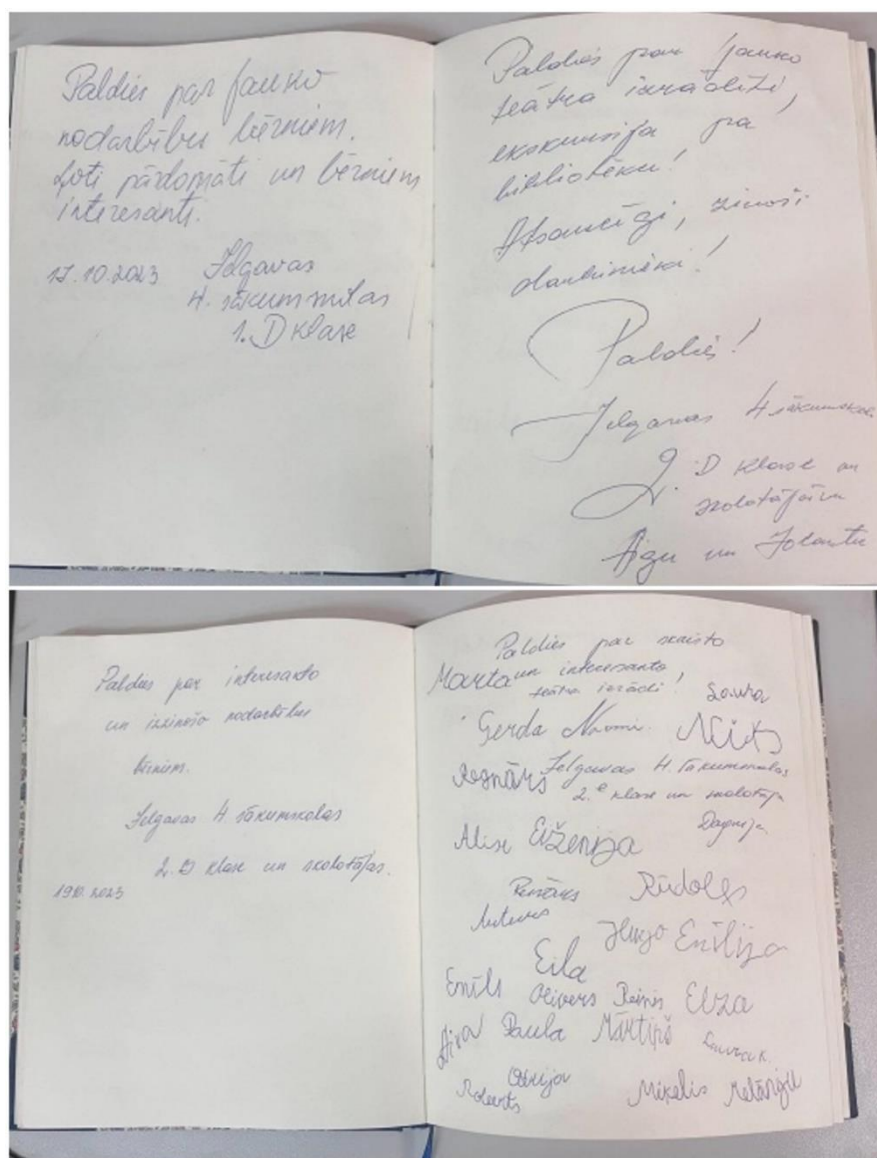 Paldies par jauko
nodarbības bērniem.
Ļoti pārdomāti un bērniem
interesanti.
17.10.2023 Jelgavas
4. sākumskolas
1. D klase
Paldies par jauko
teātra izrādīti,
ekskursija pa
bibliotēku!
Atsaucīgi, zinoši
darbinieki!
Paldies!
Jelgavas 4 sākumskol.
2. D klase un
skolotājām
Aigu un Jolantu
Paldies par interesanto
un izzinošo nodarbību
bērniem.
Jelgavas 4. sākumskolas
2. B klase un skolotājas.
19.10.2023
Paldies par skaisto
Marta un interesanto
teātra izrādi! Laura
Gerda Naomi Nils
Ragnārs Jelgavas 4. sākumskolas
2. e klase un skolotāja
Dagnija.
Alise Eiženija
Renārs Rūdolfs
Arturs
Hugo Emīlija
Eila
Emīls Olivers Reinis Elza
Aiva Paula Mārtiņš Laura K.
Olīvija
Roberts Miķelis